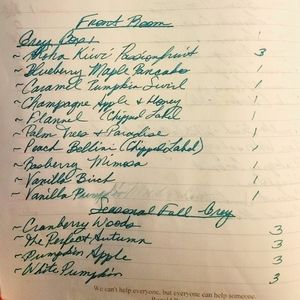 Front Room
Grey Box 1
~ Aloha Kiwi Passionfruit 3
~ Blueberry Maple Pancakes 1
~ Caramel Pumpkin Swirl 1
~ Champagne Apple & Honey 1
~ Flannel (Chipped Label) 1
~ Palm Trees & Paradise 1
~ Peach Bellini (Chipped Label) 1
~ Rasberry Mimosa 1
~ Vanilla Birch 1
~ Vanilla Pumpkin 1
Seasonal Fall - Grey
~ Cranberry Woods 3
~ The Perfect Autumn 3
~ Pumpkin Apple 3
~ White Pumpkin 3
We can't help everyone, but everyone can help someone.